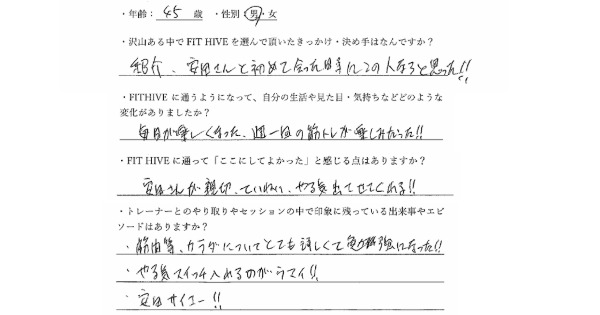 ・年齢： 45 歳 ・性別：男・女
・沢山ある中で FIT HIVE を選んで頂いたきっかけ・決め手はなんですか？
紹介、安田さんと初めて会った時にこの人なると思った!!
・FITHIVE に通うようになって、自分の生活や見た目・気持ちなどどのような
変化がありましたか？
毎日が楽しくなった、週一回の筋トレが楽しみだった!!
・FIT HIVE に通って「ここにしてよかった」と感じる点はありますか？
安田さんが親切、ていねい、やる気出てせてくれる!!
・トレーナーとのやり取りやセッションの中で印象に残っている出来事やエピ
ソードはありますか？
・筋肉等、カラダについてとても詳しくて勉強になった!!
・やる気スイッチ入れるのがウマイ!!
・安田サイコー!!